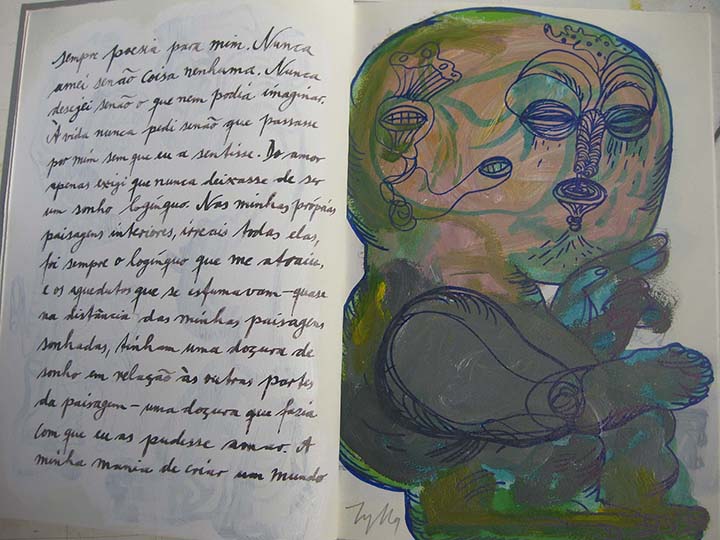 sempre poesia para mim. Nunca
amei senão coisa nenhuma. Nunca
desejei senão o que nem podia imaginar.
À vida nunca pedi senão que passasse
por mim sem que eu a sentisse. Do amor
apenas exigi que nunca deixasse de ser
um sonho loginquo. Nas minhas próprias
paisagens interiores, irreais todas elas,
foi sempre o loginquo que me atraiu,
e os aquedutos que se esfumavam - quase
na distância das minhas paisagens
sonhadas, tinham uma doçura de
sonho em relação às outras partes
da paisagem - uma doçura que fazia
com que eu as pudesse amar. A
minha mania de criar um mundo